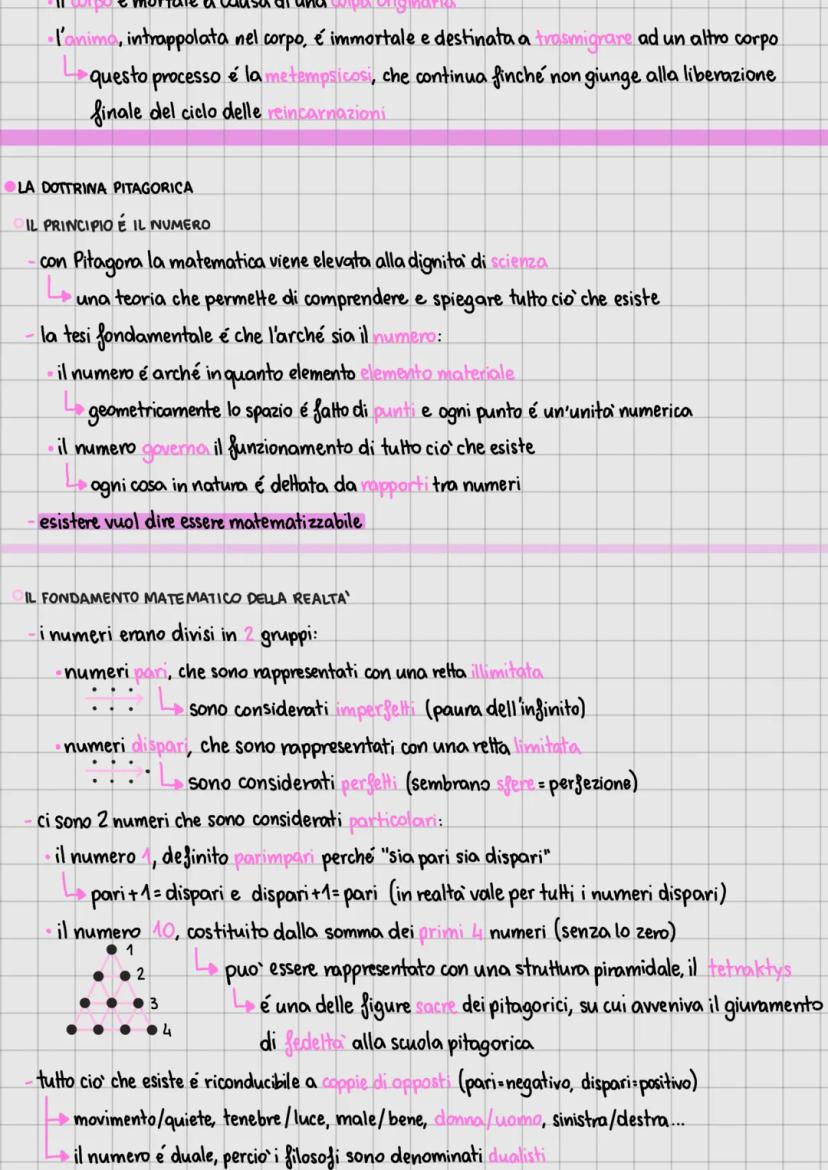 il corpo è mortale a causa di una colpa originaria
•l'anima, intrappolata nel corpo, é immortale e destinata a trasmigrare ad un altro corpo
questo processo é la metempsicosi, che continua finché non giunge alla liberazione
finale del ciclo delle reincarnazioni
LA DOTTRINA PITAGORICA
IL PRINCIPIO É IL NUMERO
- con Pitagora la matematica viene elevata alla dignità di scienza
una teoria che permette di comprendere e spiegare tutto ciò che esiste
- la tesi fondamentale é che l'arché sia il numero:
• il numero é arché in quanto elemento elemento materiale
geometricamente lo spazio é fatto di punti e ogni punto é un'unità numerica
• il numero governa il funzionamento di tutto ciò che esiste
ogni cosa in natura é dettata da rapporti tra numeri
- esistere vuol dire essere matematizzabile
IL FONDAMENTO MATEMATICO DELLA REALTA'
- i numeri erano divisi in 2 gruppi:
• numeri pari, che sono rappresentati con una retta illimitata
sono considerati imperfetti (paura dell'infinito)
• numeri dispari, che sono rappresentati con una retta limitata
sono considerati perfetti (sembrano sfere = perfezione)
- ci sono 2 numeri che sono considerati particolari:
• il numero 1, definito parimpari perché "sia pari sia dispari"
pari+1= dispari e dispari+1= pari (in realtà vale per tutti i numeri dispari)
• il numero 10, costituito dalla somma dei primi 4 numeri (senza lo zero)
1
2
3
4
può essere rappresentato con una struttura piramidale, il tetraktys
é una delle figure sacre dei pitagorici, su cui avveniva il giuramento
di fedeltà alla scuola pitagorica
- tutto ciò che esiste é riconducibile a coppie di opposti (pari=negativo, dispari=positivo)
movimento/quiete, tenebre/luce, male/bene, donna/uomo, sinistra/destra...
il numero é duale, perciò i filosofi sono denominati dualisti